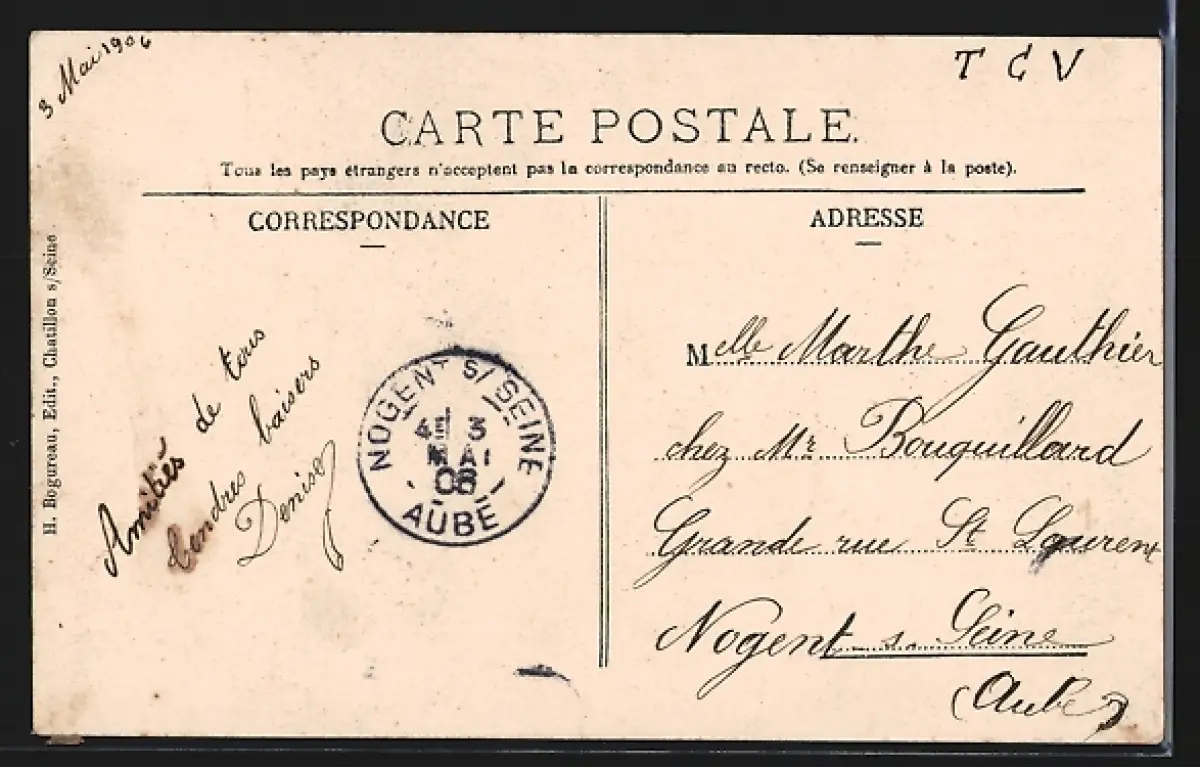 3 Mai 1906
T C V
CARTE POSTALE.
Tous les pays étrangers n'acceptent pas la correspondance au recto. (Se renseigner à la poste).
CORRESPONDANCE
Amitiés de tous
tendres baisers
Denise
NOGENT S/SEINE
4E 3
MAI
06
AUBE
ADRESSE
Melle Marthe Gauthier
chez Mr Bouquillard
Grande rue St Laurent
Nogent s. Seine
(Aube)
H. Bogureau, Edit., Chatillon s/Seine